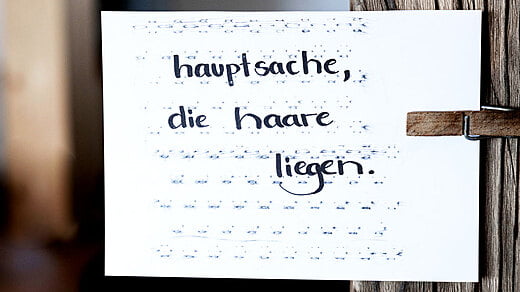 hauptsache,
die haare
liegen.